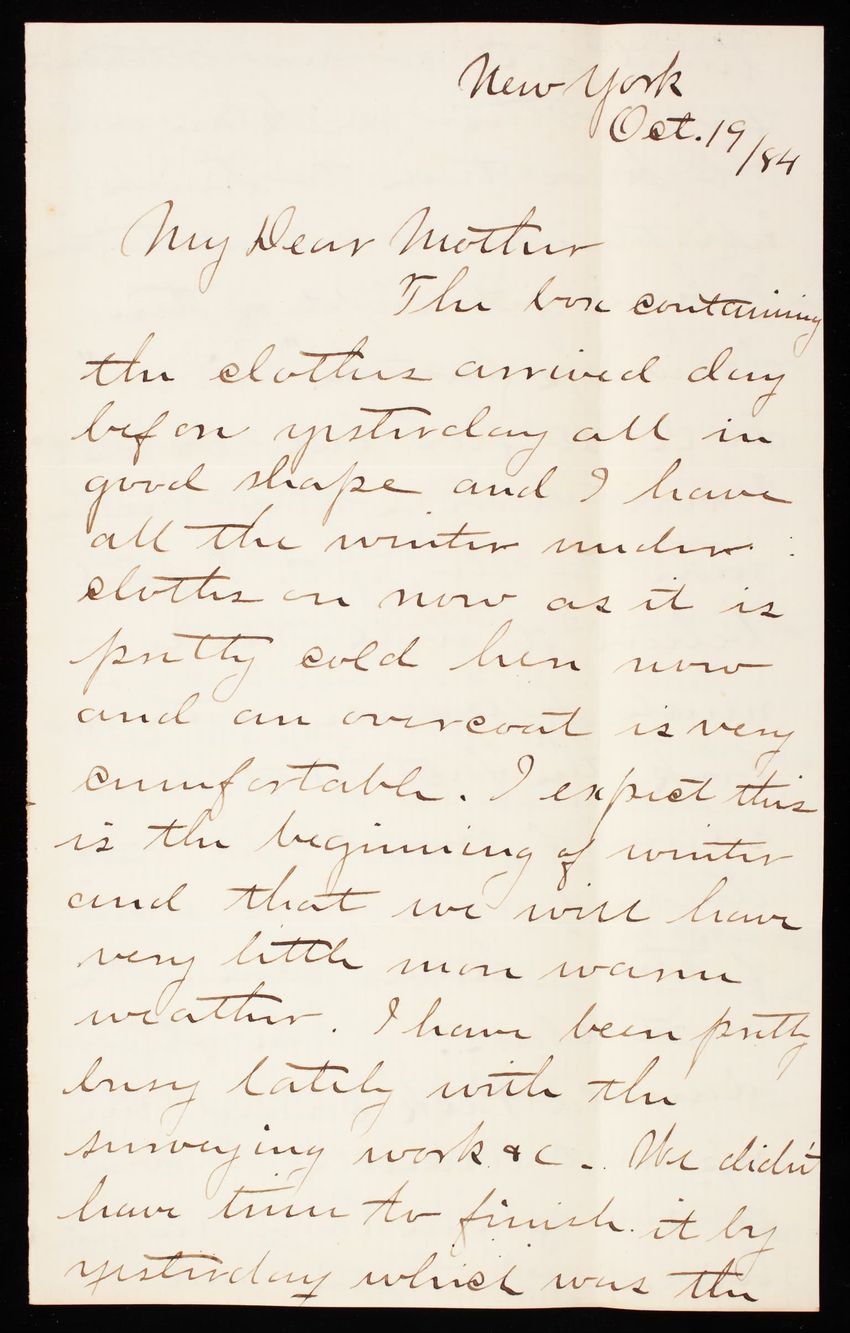 New York
Oct. 19/84
My Dear Mother
The box containing
the clothes arrived day
before yesterday all in
good shape and I have
all the winter under
clothes on now as it is
pretty cold here now
and an overcoat is very
comfortable. I expect this
is the beginning of winter
and that we will have
very little more warm
weather. I have been pretty
busy lately with the
surveying work &c. We didn't
have time to finish it by
yesterday which was the